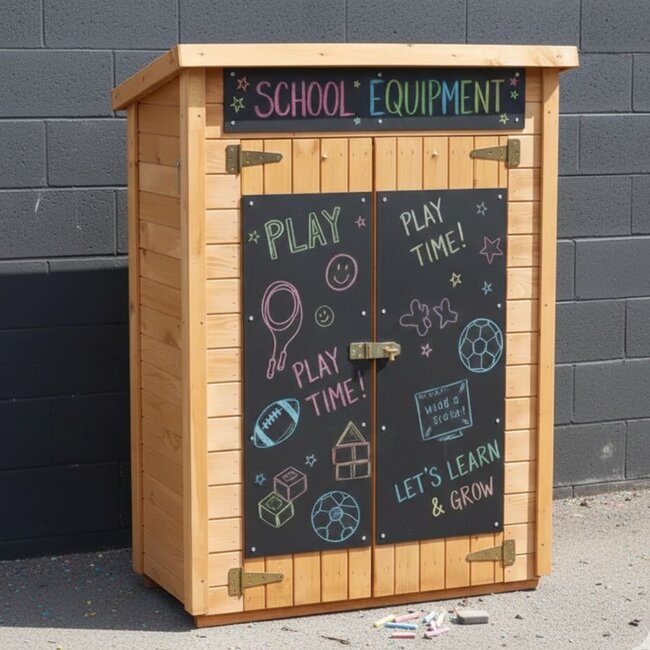 SCHOOL EQUIPMENT
PLAY
PLAY
TIME!
PLAY
TIME!
LET'S LEARN
& GROW